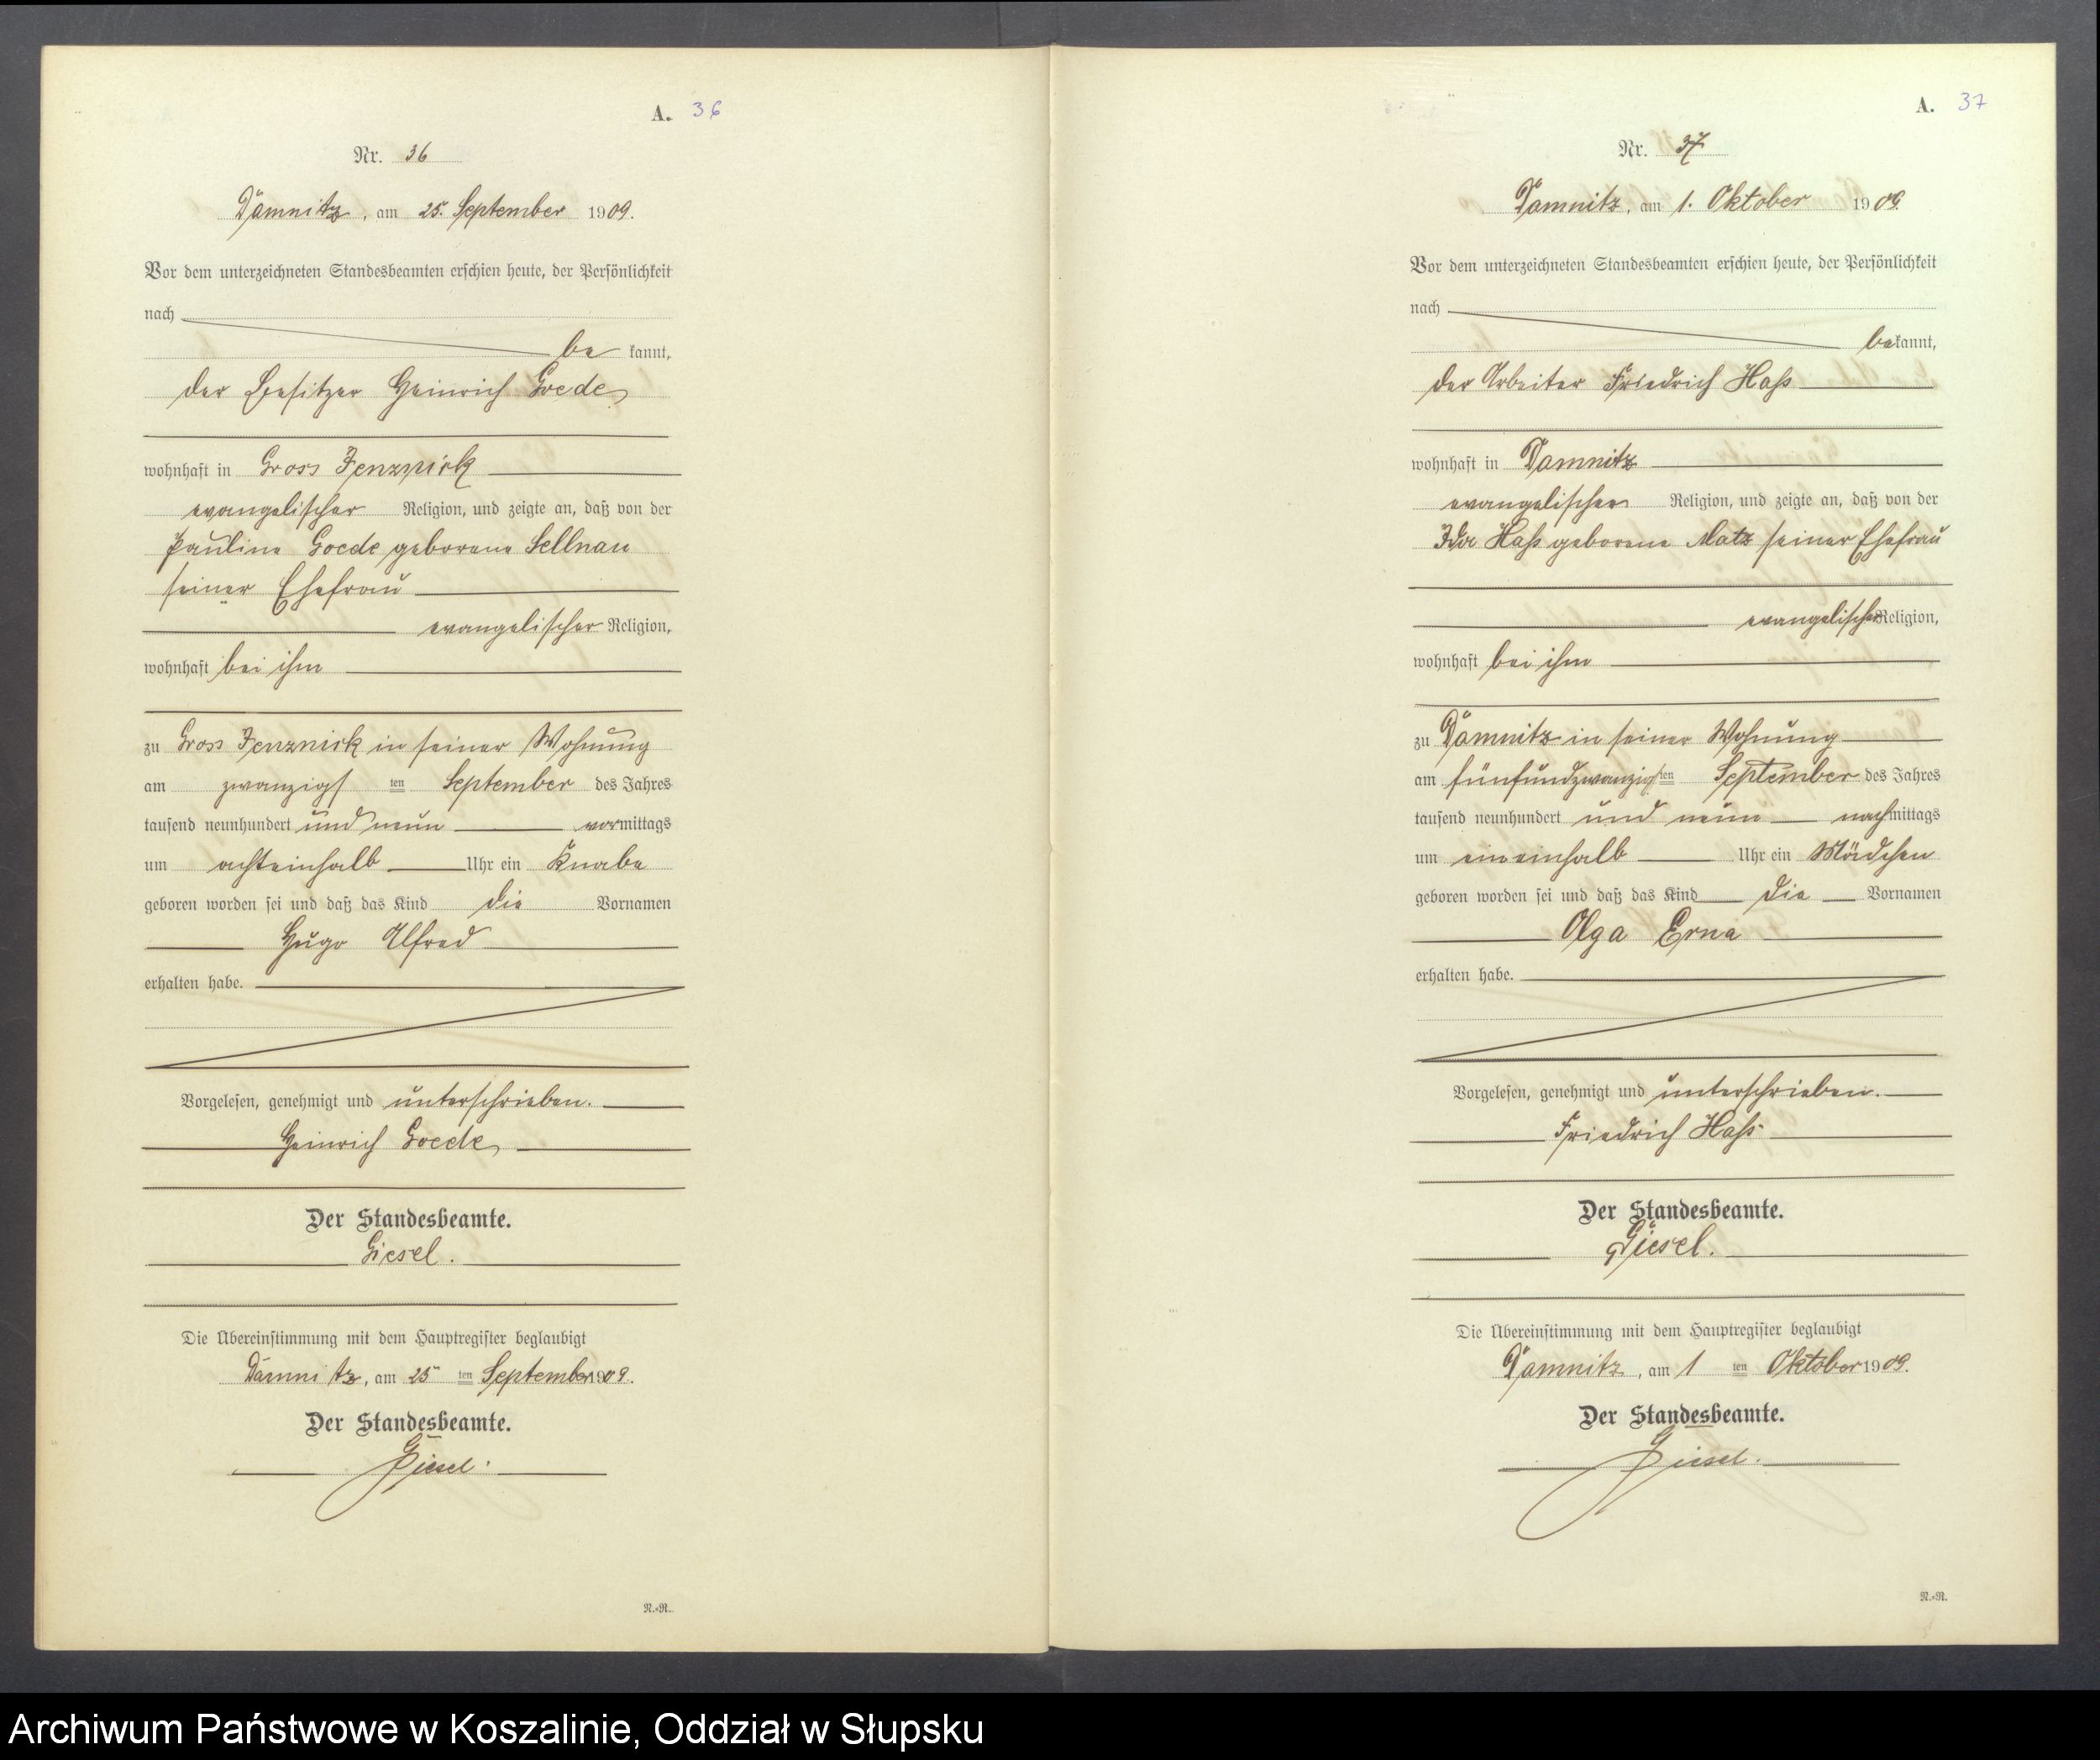 A. 36
Nr. 36
Damnitz, am 25. September 1909.
Vor dem unterzeichneten Standesbeamten erschien heute, der Persönlichkeit
nach
be kannt,
der Besitzer Heinrich Goede
wohnhaft in Gross Jenznick
evangelischer Religion, und zeigte an, daß von der
Pauline Goede geborene Sellnau
seiner Ehefrau
evangelischer Religion,
wohnhaft bei ihm
zu Gross Jenznick in seiner Wohnung
am zwanzigs ten September des Jahres
tausend neunhundert und neun vormittags
um achteinhalb Uhr ein Knabe
geboren worden sei und daß das Kind die Vornamen
Hugo Alfred
erhalten habe.
Vorgelesen, genehmigt und unterschrieben.
Heinrich Goede
Der Standesbeamte.
Giesel.
Die Übereinstimmung mit dem Hauptregister beglaubigt
Damnitz, am 25 ten September 1909.
Der Standesbeamte.
Giesel.
N.=R.
A. 37
Nr. 37
Damnitz, am 1. Oktober 1909.
Vor dem unterzeichneten Standesbeamten erschien heute, der Persönlichkeit
nach
bekannt,
der Arbeiter Friedrich Haß
wohnhaft in Damnitz
evangelischer Religion, und zeigte an, daß von der
Ida Haß geborene Matz seiner Ehefrau
evangelischer Religion,
wohnhaft bei ihm
zu Damnitz in seiner Wohnung
am fünfundzwanzigsten September des Jahres
tausend neunhundert und neun nachmittags
um eineinhalb Uhr ein Mädchen
geboren worden sei und daß das Kind die Vornamen
Olga Erna
erhalten habe.
Vorgelesen, genehmigt und unterschrieben.
Friedrich Haß
Der Standesbeamte.
Giesel.
Die Übereinstimmung mit dem Hauptregister beglaubigt
Damnitz, am 1 ten Oktober 1909.
Der Standesbeamte.
Giesel.
N.=R.
Archiwum Państwowe w Koszalinie, Oddział w Słupsku